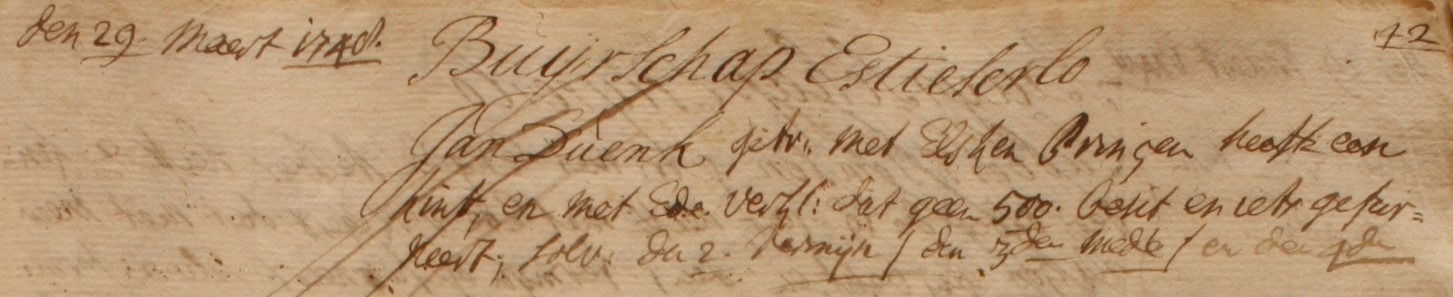 den 29. Maert 1748. Buijrschap Estieserlo 42
Jan Duenk getr: met Esken Prinçen heeft een
kint, en met Ede verkl: dat geen 500. besit en iets gefur=
neert, solv: den 2. termijn / den 3den mede / en den 4den